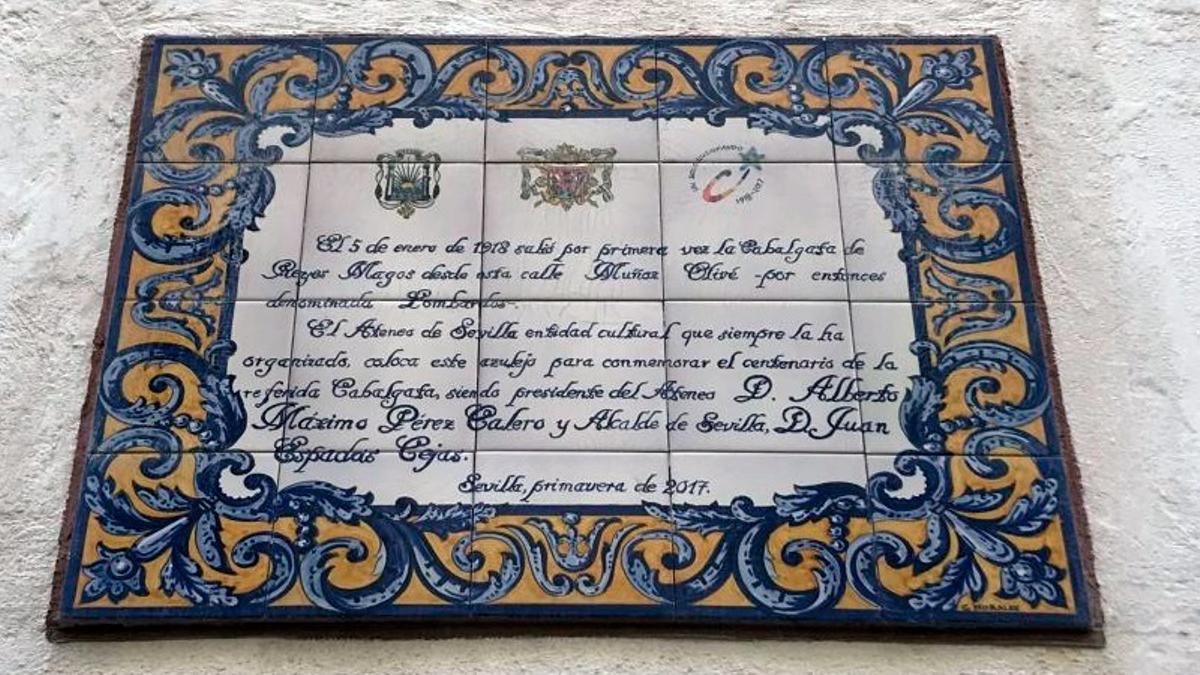 1918-2017
El 5 de enero de 1918 salió por primera vez la Cabalgata de
Reyes Magos desde esta calle Muñoz Olivé -por entonces
denominada Lombardos-.
El Ateneo de Sevilla entidad cultural que siempre la ha
organizado, coloca este azulejo para conmemorar el centenario de la
referida Cabalgata, siendo presidente del Ateneo D. Alberto
Máximo Pérez Calero y Alcalde de Sevilla, D. Juan
Espadas Cejas.
Sevilla, primavera de 2017.
C. MORALES